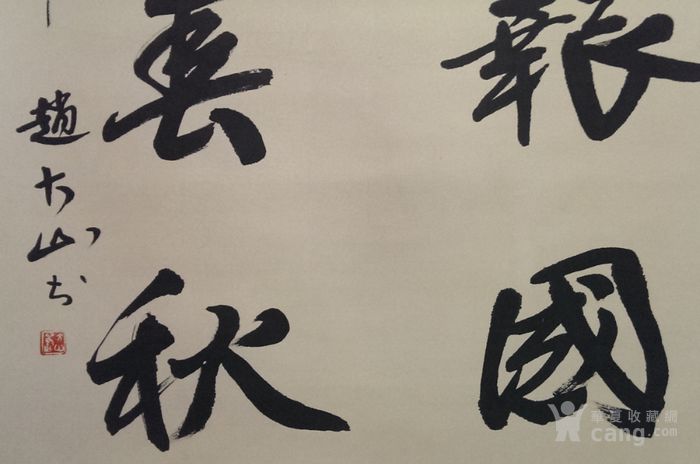 報國
春秋
趙大山书
華夏收藏網
cang.com